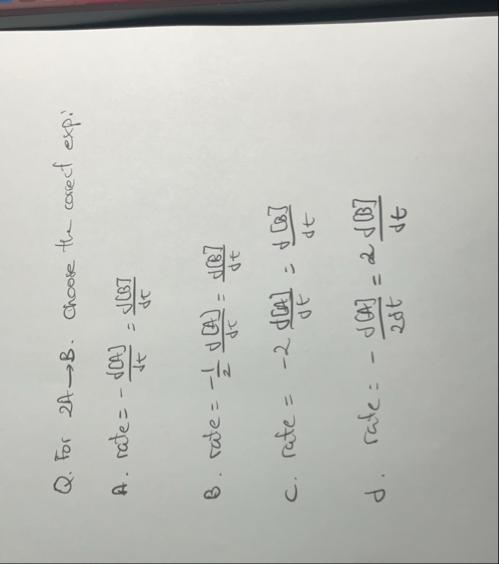 Q. For 2A → B. choose the correct exp:
A. rate = - d[A]/dt = d[B]/dt
B. rate = - 1/2 d[A]/dt = d[B]/dt
C. rate = -2 d[A]/dt = d[B]/dt
d. rate = - d[A]/2dt = 2 d[B]/dt